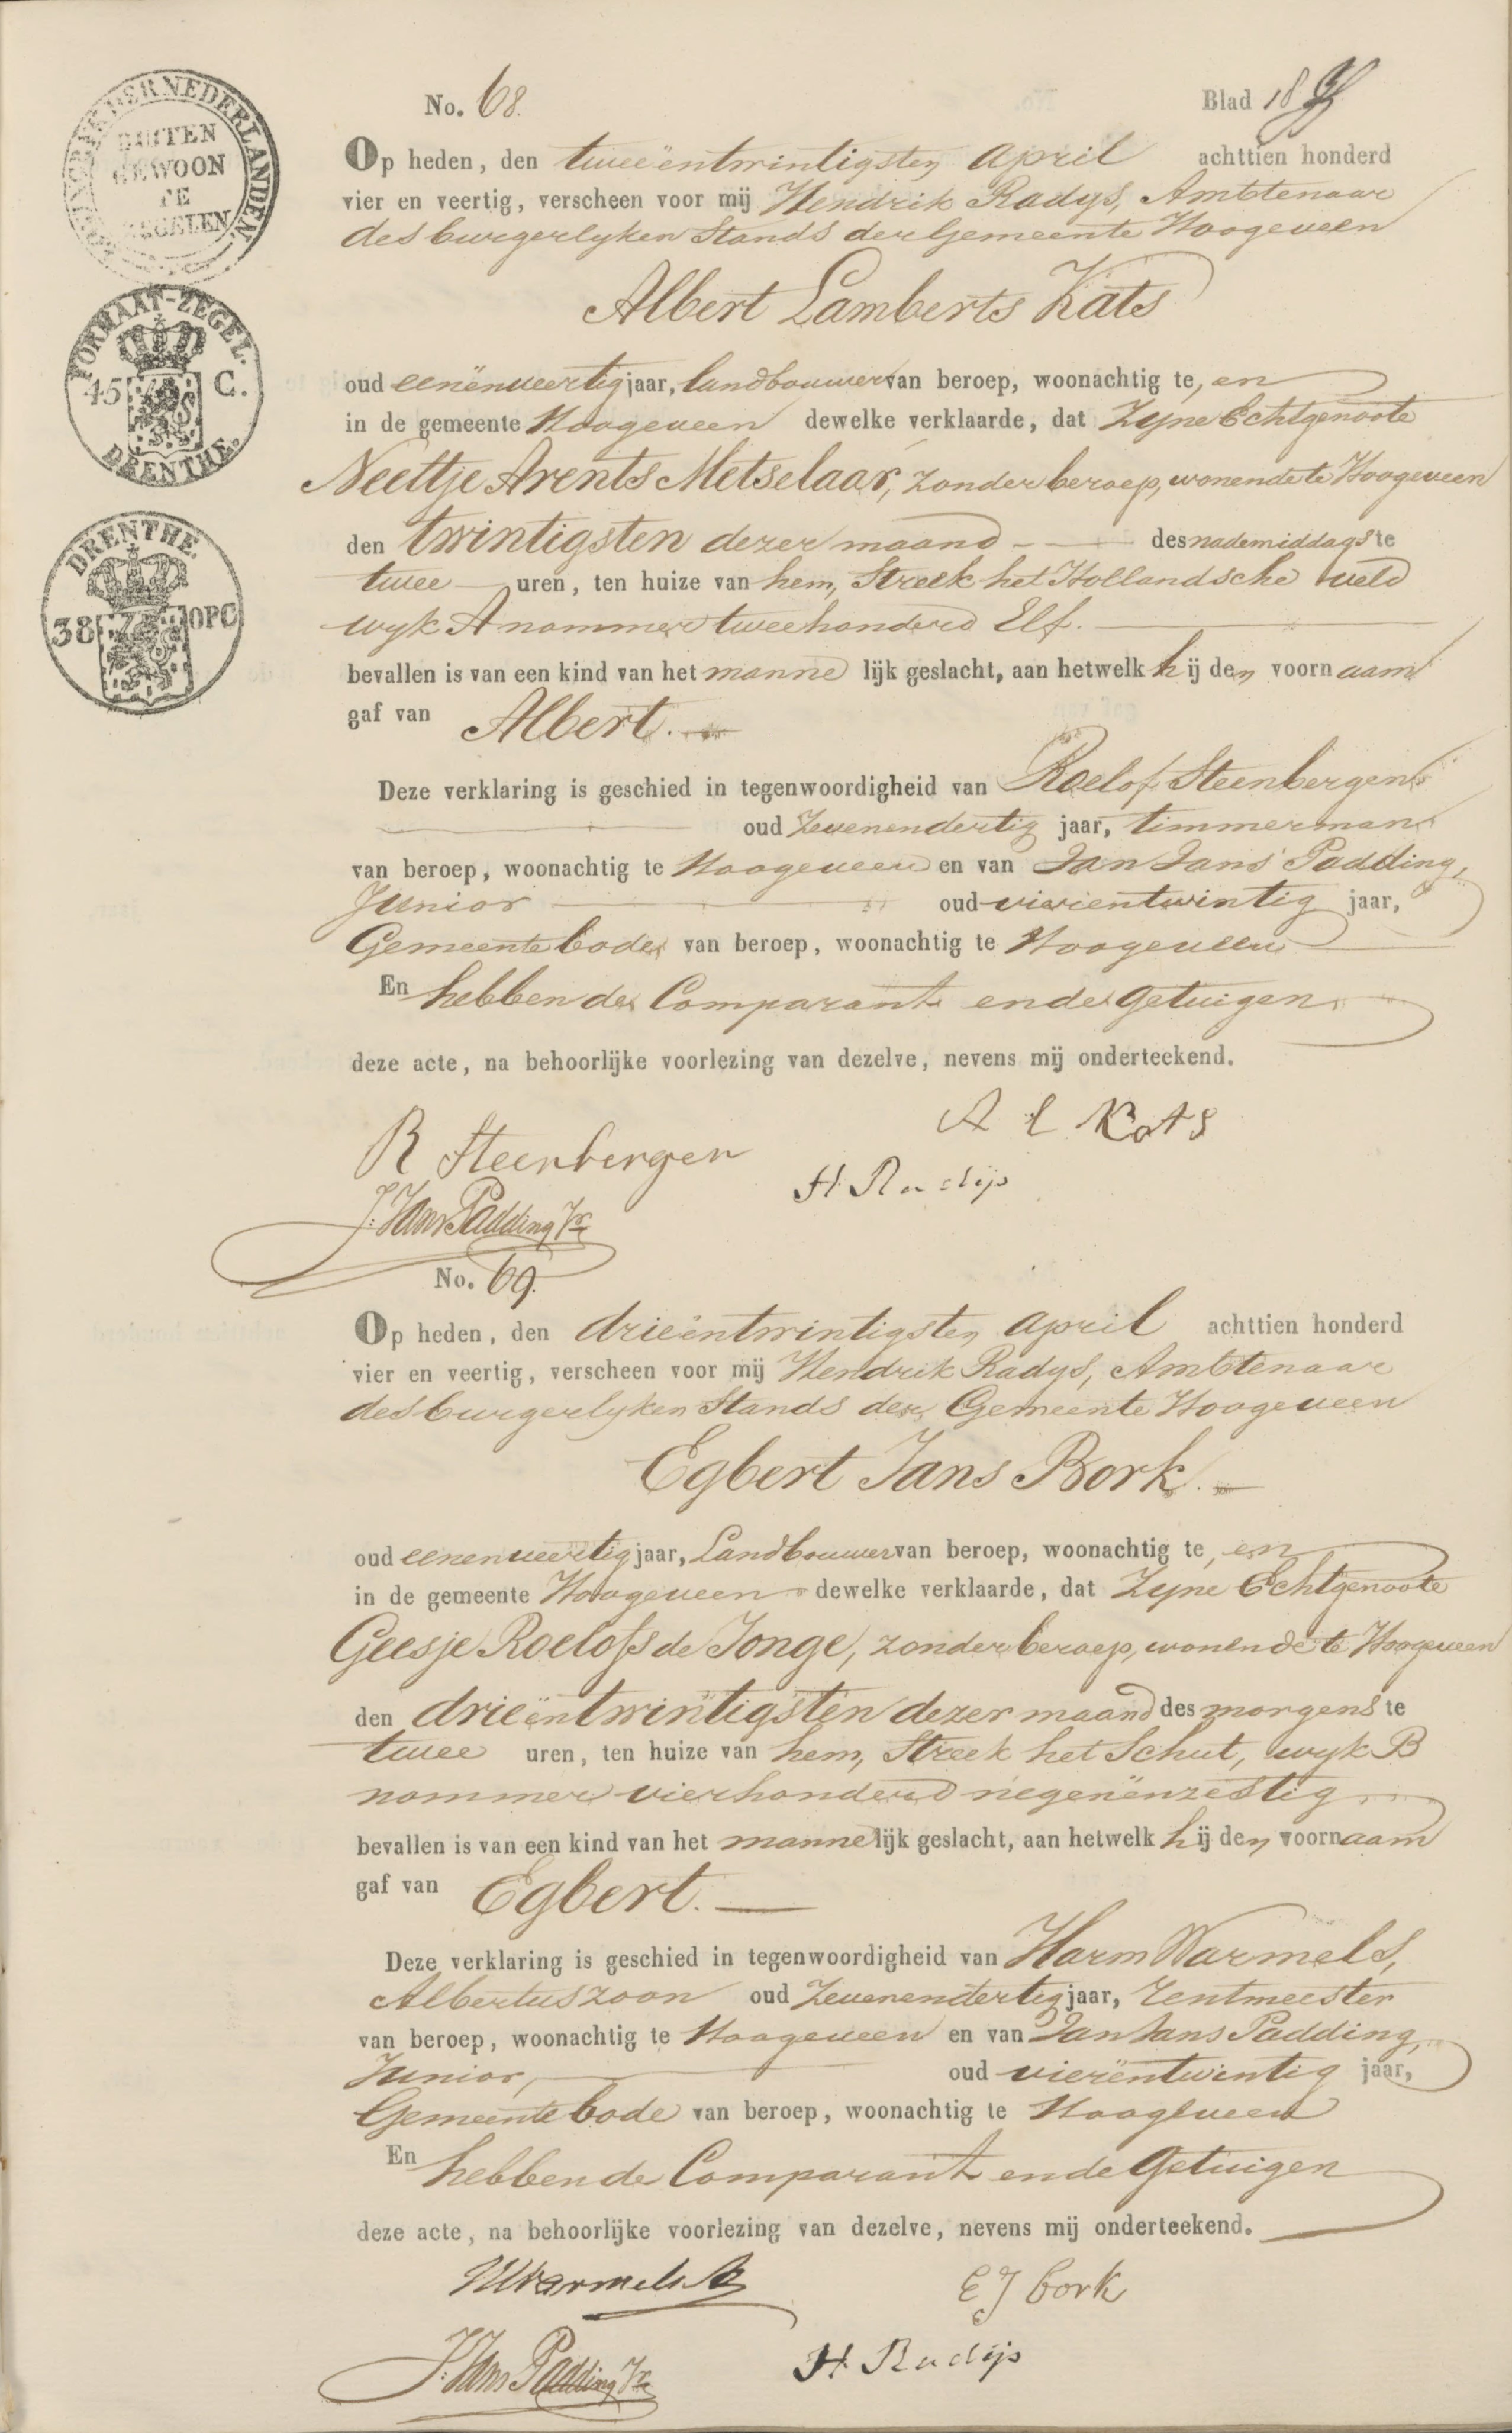 No. 68. Blad 18
Op heden, den tweeëntwintigsten April achttien honderd
vier en veertig, verscheen voor mij Hendrik Radijs, Ambtenaar
des burgerlyken Stands der Gemeente Hoogeveen
Albert Lamberts Kats
oud eenënveertig jaar, landbouwer van beroep, woonachtig te, en
in de gemeente Hoogeveen dewelke verklaarde, dat Zyne Echtgenoote
Neeltje Arents Metselaar, zonder beroep, wonende te Hoogeveen
den twintigsten dezer maand des nademiddags te
twee uren, ten huize van hem, Streek het Hollandsche veld
wyk A nommer tweehonderd Elf.
bevallen is van een kind van het mannelijk geslacht, aan hetwelk hij den voornaam
gaf van Albert.
Deze verklaring is geschied in tegenwoordigheid van Roelof Steenbergen
oud Zevenendertig jaar, timmerman
van beroep, woonachtig te Hoogeveen en van Jan Jans Padding,
Junior oud vierëntwintig jaar,
Gemeentebode van beroep, woonachtig te Hoogeveen
En hebben de Comparant en de getuigen
deze acte, na behoorlijke voorlezing van dezelve, nevens mij onderteekend.
A L Kats
R Steenbergen
H. Radijs
J: Jans Padding Jr
No. 69.
Op heden, den drieëntwintigsten April achttien honderd
vier en veertig, verscheen voor mij Hendrik Radijs, Ambtenaar
des burgerlyken Stands der Gemeente Hoogeveen
Egbert Jans Bork.
oud eenenveertig jaar, Landbouwer van beroep, woonachtig te, en
in de gemeente Hoogeveen dewelke verklaarde, dat Zyne Echtgenoote
Geesje Roelofs de Jonge, zonder beroep, wonende te Hoogeveen
den drieëntwintigsten dezer maand des morgens te
twee uren, ten huize van hem, Streek het Schut, wyk B
nommer vierhonderd negenënzestig.
bevallen is van een kind van het mannelijk geslacht, aan hetwelk hij den voornaam
gaf van Egbert.
Deze verklaring is geschied in tegenwoordigheid van Harm Warmels,
Albertuszoon oud Zevenendertig jaar, Rentmeester
van beroep, woonachtig te Hoogeveen en van Jan Jans Padding,
Junior, oud vierëntwintig jaar,
Gemeentebode van beroep, woonachtig te Hoogeveen
En hebben de Comparant en de Getuigen
deze acte, na behoorlijke voorlezing van dezelve, nevens mij onderteekend.
HWarmels Az
E J bork
J: Jans Padding Jr
H. Radijs
DER NEDERLANDEN
BUITEN
GEWOON
TE
ZEGELEN
FORMAAT-ZEGEL.
45 C.
DRENTHE.
DRENTHE.
38 OPC